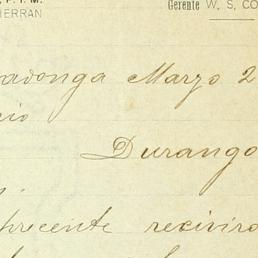 P. I. M.
HERRAN
Gerente W. S. CO
adonga Marzo 2
io
Durango
precente reciviro